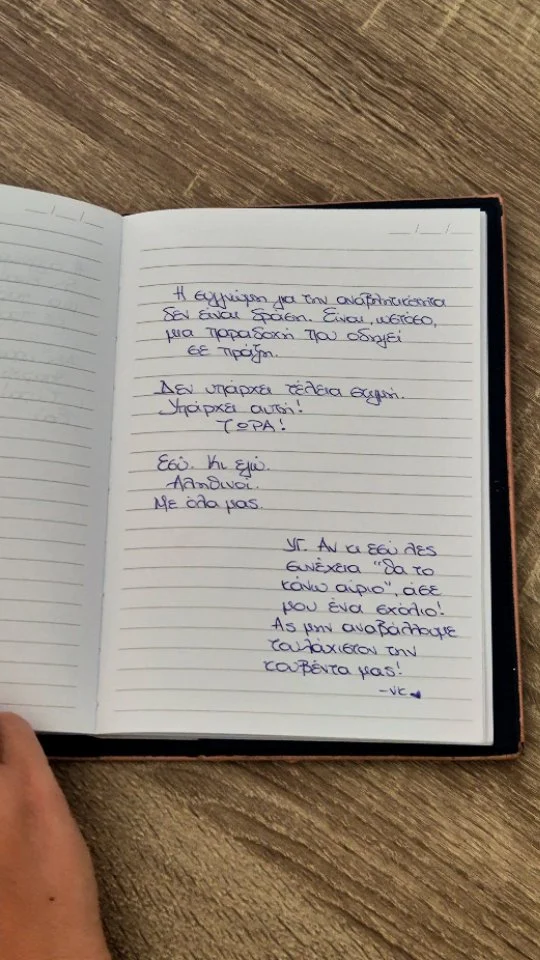 Η συγγνώμη για την αναβλητικότητα
δεν είναι δράση. Είναι, ωστόσο,
μια παραδοχή που οδηγεί
σε πράξη.
Δεν υπάρχει τέλεια στιγμή.
Υπάρχει αυτή!
ΤΩΡΑ!
Εσύ. Κι εγώ.
Αληθινοί.
Με όλα μας.
ΥΓ. Αν κι εσύ λες
συνέχεια "θα το
κάνω αύριο", άσε
μου ένα σχόλιο!
Ας μην αναβάλλουμε
τουλάχιστον την
κουβέντα μας!
-VK